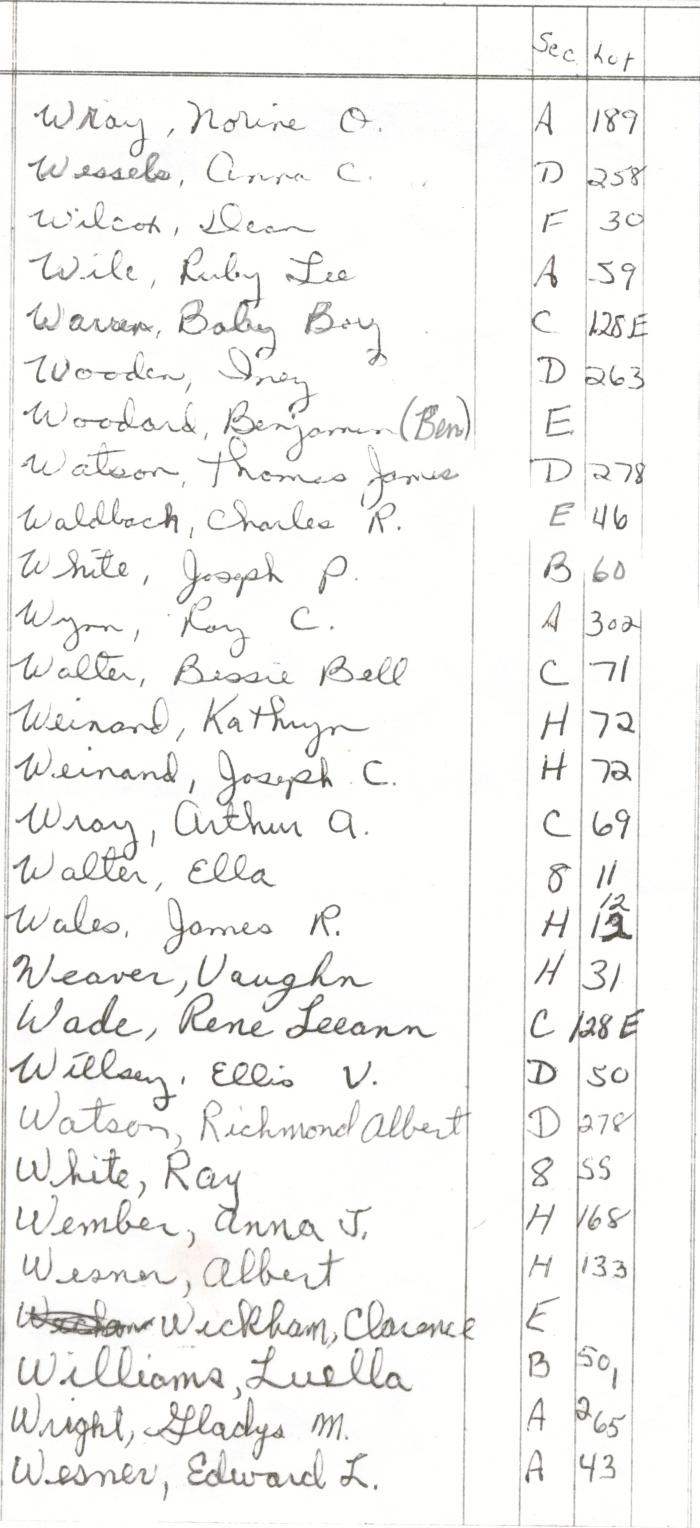 Sec Lot
Wray, Norine O. A 189
Wessels, Anna C. D 258
Wilcox, Dean F 30
Wile, Ruby Lee A 59
Warren, Baby Boy C 128E
Wooden, Iney D 263
Woodard, Benjamin (Ben) E
Watson, Thomas James D 278
Waldbach, Charles R. E 46
White, Joseph P. B 60
Wynn, Ray C. A 302
Walter, Bessie Bell C 71
Weinand, Kathryn H 72
Weinand, Joseph C. H 72
Wray, Arthur A. C 69
Walter, Ella 8 11
12
Wales, James R. H 12
Weaver, Vaughn H 31
Wade, Rene Leeann C 128E
Willsey, Ellis V. D 50
Watson, Richmond Albert D 278
White, Ray 8 55
Wember, Anna J. H 168
Wesner, Albert H 133
Wickham, Clarence E
Williams, Luella B 50,
Wright, Gladys M. A 265
Wesner, Edward L. A 43